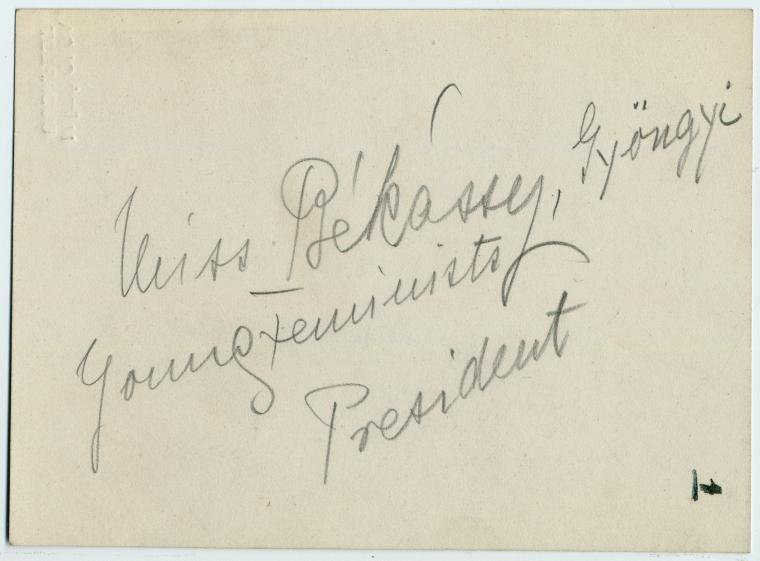 Miss Békássy, Gyöngyi
Young Feminists
President